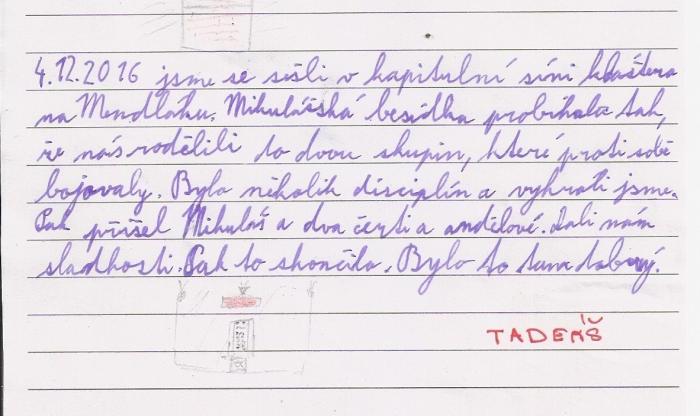 4.12.2016 jsme se sešli v kapitulní síni kláštera
na Mendláku. Mikulášská besídka probíhala tak,
že nás rodělili do dvou skupin, které proti sobě
bojovaly. Bylo několik disciplín a vyhráli jsme.
Pak přišel Mikuláš a dva čerti a andělové. Dali nám
sladkosti. Pak to skončilo. Bylo to tam dobrý.
TADEÁŠ